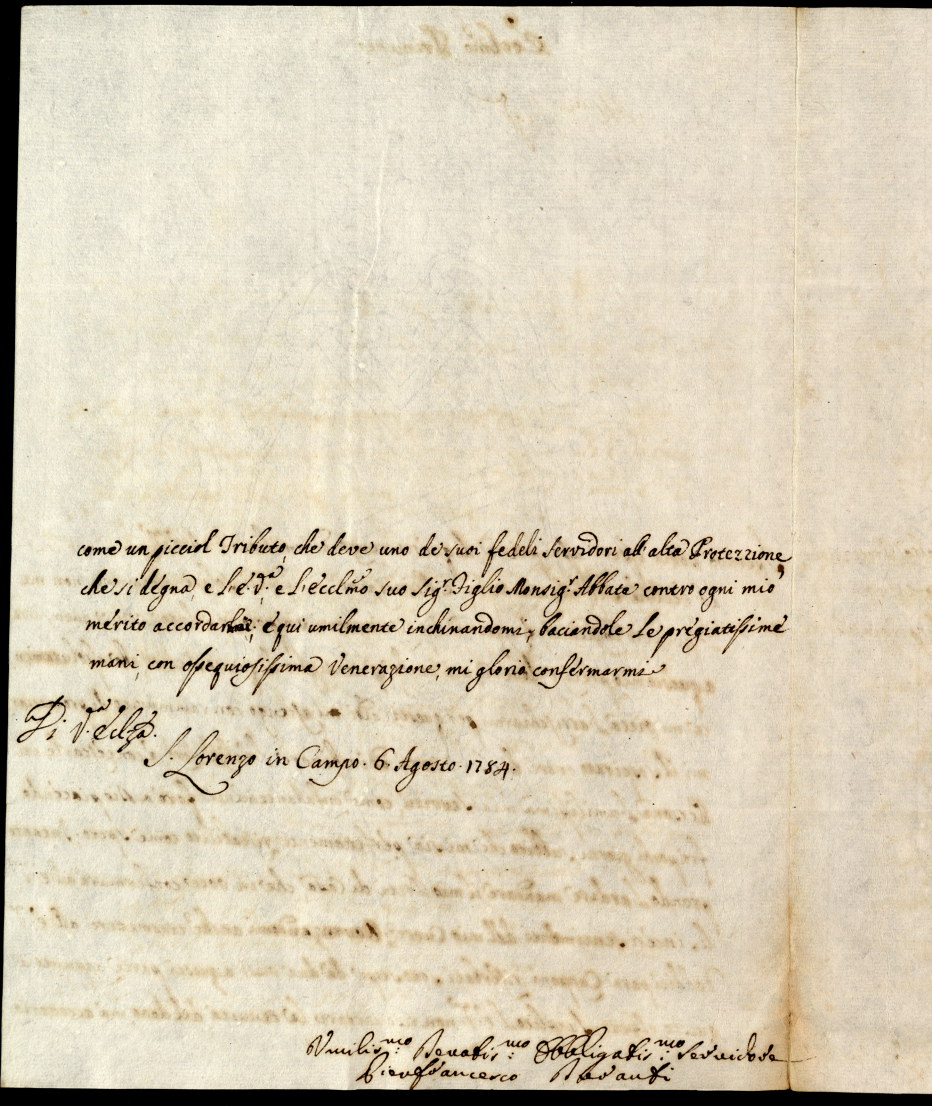 come un picciol Tributo, che deve uno de suoi fedeli Servidori all'alta Protezzione,
che si degna, e l'E. V.ª e l'Ecclmo suo Sig.r Figlio Monsig.r Abbate contro ogni mio
merito accordarmi: e qui umilmente inchinandomi, baciandole le pregiatissime
mani, con ossequiosissima Venerazione, mi glorio confermarmi
Di V.ª Eclza.
S. Lorenzo in Campo. 6. Agosto. 1784.
Umilis.mo Devotis.mo Obbligatis.mo Servidore
Pierfrancesco